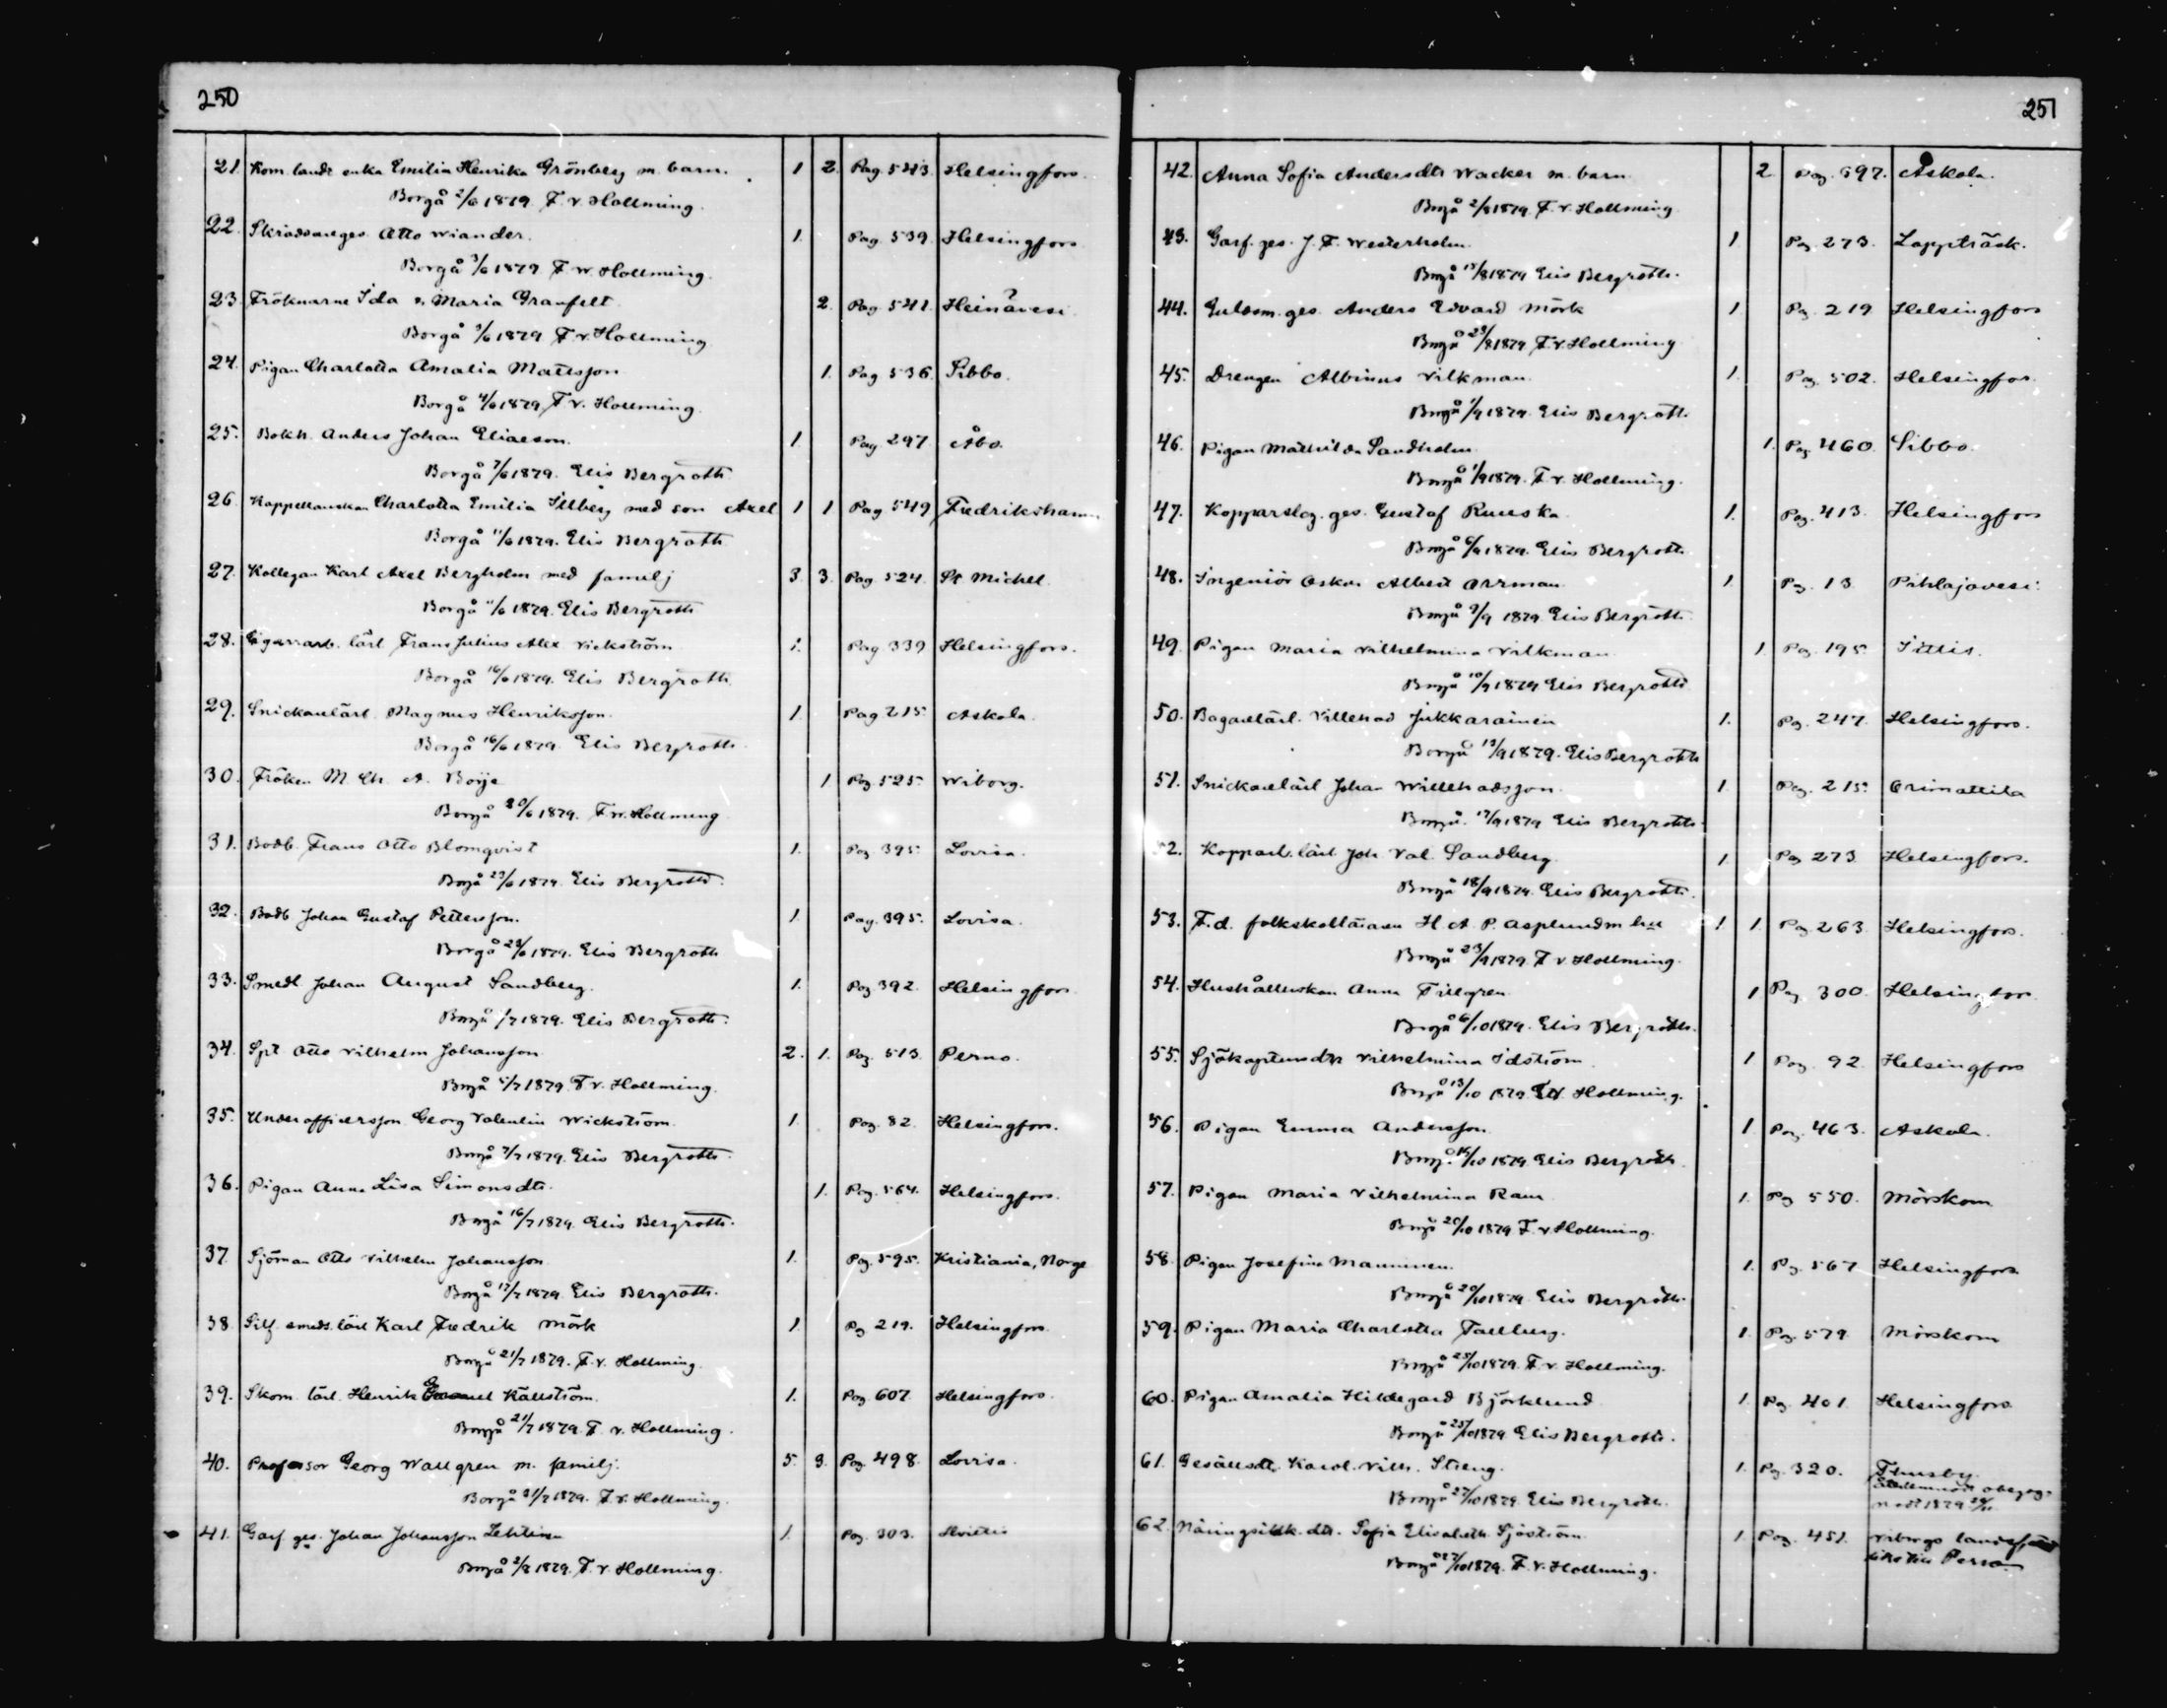 250
21. Kom. landt enka Emilia Henrika Grönberg m. barn. 1 2. Pag. 543. Helsingfors.
Borgå 2/6 1879. F. v. Hollming.
22. Skrädareges. Otto Wiander. 1. Pag. 539. Helsingfors
Borgå 3/6 1879 F. v. Hollming.
23. Fröknarne Ida o. Maria Granfelt 2. Pag. 541. Heinävesi ?
Borgå 3/6 1879 F. v. Hollming
24. Pigan Charlotta Amalia Mattsson 1. Pag 536. Sibbo.
Borgå 4/6 1879 F. v. Hollming.
25. Bokh. Anders Johan Eliaeson. 1. Pag 297. Åbo.
Borgå 7/6 1879. Elis Bergroth
26. Kappelanskan Charlotta Emilia Illberg med son Axel 1 1 Pag 549 Fredrikshamn
Borgå 11/6 1879. Elis Bergroth
27. Kollegan Karl Axel Bergholm med familj 3. 3. Pag. 524. St Michel.
Borgå 11/6 1879. Elis Bergroth
28. Cigarrarb. lärl. Frans Julius Alex Vickström 1. Pag 339 Helsingfors.
Borgå 16/6 1879. Elis Bergroth.
29. Snickarelärl. Magnus Henriksson. 1. Pag 215. Askola.
Borgå 16/6 1879. Elis Bergroth.
30. Fröken M. Ch. A. Boije 1 Pag. 525. Wiborg.
Borgå 20/6 1879. F. v. Hollming
31. Bodb. Frans Otto Blomqvist 1. Pag. 395. Lovisa.
Borgå 23/6 1879. Elis Bergroth.
32. Bodb Johan Gustaf Pettersson. 1. Pag. 395. Lovisa.
Borgå 28/6 1879. Elis Bergroth
33. Smedl. Johan August Sandberg. 1. Pag. 392. Helsingfors
Borgå 1/7 1879. Elis Bergroth.
34. Spt Otto Vilhelm Johansson. 2. 1. Pag. 513. Perno.
Borgå 5/7 1879. F. v. Hollming.
35. Underofficersson Georg Valentin Wickström. 1. Pag. 82. Helsingfors.
Borgå 7/7 1879. Elis Bergroth.
36. Pigan Anna Lisa Simonsdtr. 1. Pag. 564. Helsingfors.
Borgå 16/7 1879. Elis Bergroth.
37. Sjöman Otto Vilhelm Johansson. 1. Pag. 595. Kristiania, Norge
Borgå 17/7 1879. Elis Bergroth.
38. Silf. smeds. lärl Karl Fredrik Mörk 1. Pag 219. Helsingfors.
Borgå 21/7 1879. F. v. Hollming.
39. Skom. lärl. Henrik Källström. 1. Pag 607. Helsingfors.
Borgå 21/7 1879. F. v. Hollming.
40. Professor Georg Wallgren m. familj. 5. 3. Pag. 498. Lovisa.
Borgå 31/7 1879. F. v. Hollming.
41. Garf. ges. Johan Johansson Lehtinen 1. Pag. 303. Hvittis
Borgå 2/8 1879. F. v. Hollming.
251
42. Anna Sofia Andersdtr Wacker m. barn 2. Pag. 697. Askola.
Borgå 2/8 1879. F. v. Hollming
43. Garf. ges. J. F. Westerholm. 1. Pag. 273. Lappträsk.
Borgå 15/8 1879 Elis Bergroth.
44. Guldsm. ges. Anders Edvard Mörk 1. Pag. 219 Helsingfors
Borgå 23/8 1879 F. v. Hollming
45. Drengen Albinus Vilkman. 1. Pag. 502. Helsingfor.
Borgå 1/9 1879. Elis Bergroth.
46. Pigan Mathilda Sandholm 1. Pag. 460. Sibbo.
Borgå 1/9 1879. F. v. Hollming.
47. Kopparslag. ges. Gustaf Ruuska. 1. Pag. 413. Helsingfors
Borgå 6/9 1879. Elis Bergroth.
48. Ingeniör Oskar Albert Orrman. 1. Pag. 13. Pihlajavesi.
Borgå 9/9 1879 Elis Bergroth.
49. Pigan Maria Vilhelmina Vilkman 1. Pag. 195. Iittis.
Borgå 10/9 1879 Elis Bergroth
50. Bagarelärl. Villehad Jukkarainen 1. Pag. 247. Helsingfors.
Borgå 13/9 1879. Elis Bergroth
51. Snickarelärl Johan Willehadsson. 1. Pag. 215. Orimattila
Borgå. 17/9 1879 Elis Bergroth.
52. Kopparsl. lärl Joh. Val. Sandberg. 1. Pag 273. Helsingfors.
Borgå 18/9 1879. Elis Bergroth.
53. F. d. folkskolläraren H. A. P. Asplund m. hu 1. 1. Pag. 263. Helsingfors.
Borgå 23/9 1879. F. v. Hollming.
54. Hushållerskan Anna Tillgren 1 Pag. 300. Helsingfors
Borgå 6/10 1879. Elis Bergroth.
55. Sjökaptensdtr Vilhelmina Idström. 1 Pag. 92. Helsingfors
Borgå 13/10 1879. F. v. Hollming.
56. Pigan Emma Andersson. 1. Pag. 463. Askola.
Borgå 16/10 1879 Elis Bergroth.
57. Pigan Maria Vilhelmina Ram 1. Pag 550. Mörskom
Borgå 20/10 1879 F. v Hollming.
58. Pigan Josefina Manninen. 1. Pag. 567 Helsingfors
Borgå 20/10 1879. Elis Bergroth.
59. Pigan Maria Charlotta Tallberg. 1. Pag. 579. Mörskom
Borgå 25/10 1879. F. v. Hollming.
60. Pigan Amalia Hildegard Björklund 1. Pag. 401. Helsingfors
Borgå 25/10 1879. Elis Bergroth.
61. Gesällsdtr. Karol. Vilh. Streng. 1. Pag. 320. Thusby.
Borgå 27/10 1879. Elis Bergroth. 1879
62. Näringsidk. dtr. Sofia Elisabeth Sjöström. 1. Pag. 451. Viborgs
Borgå 27/10 1879. F. v. Hollming.